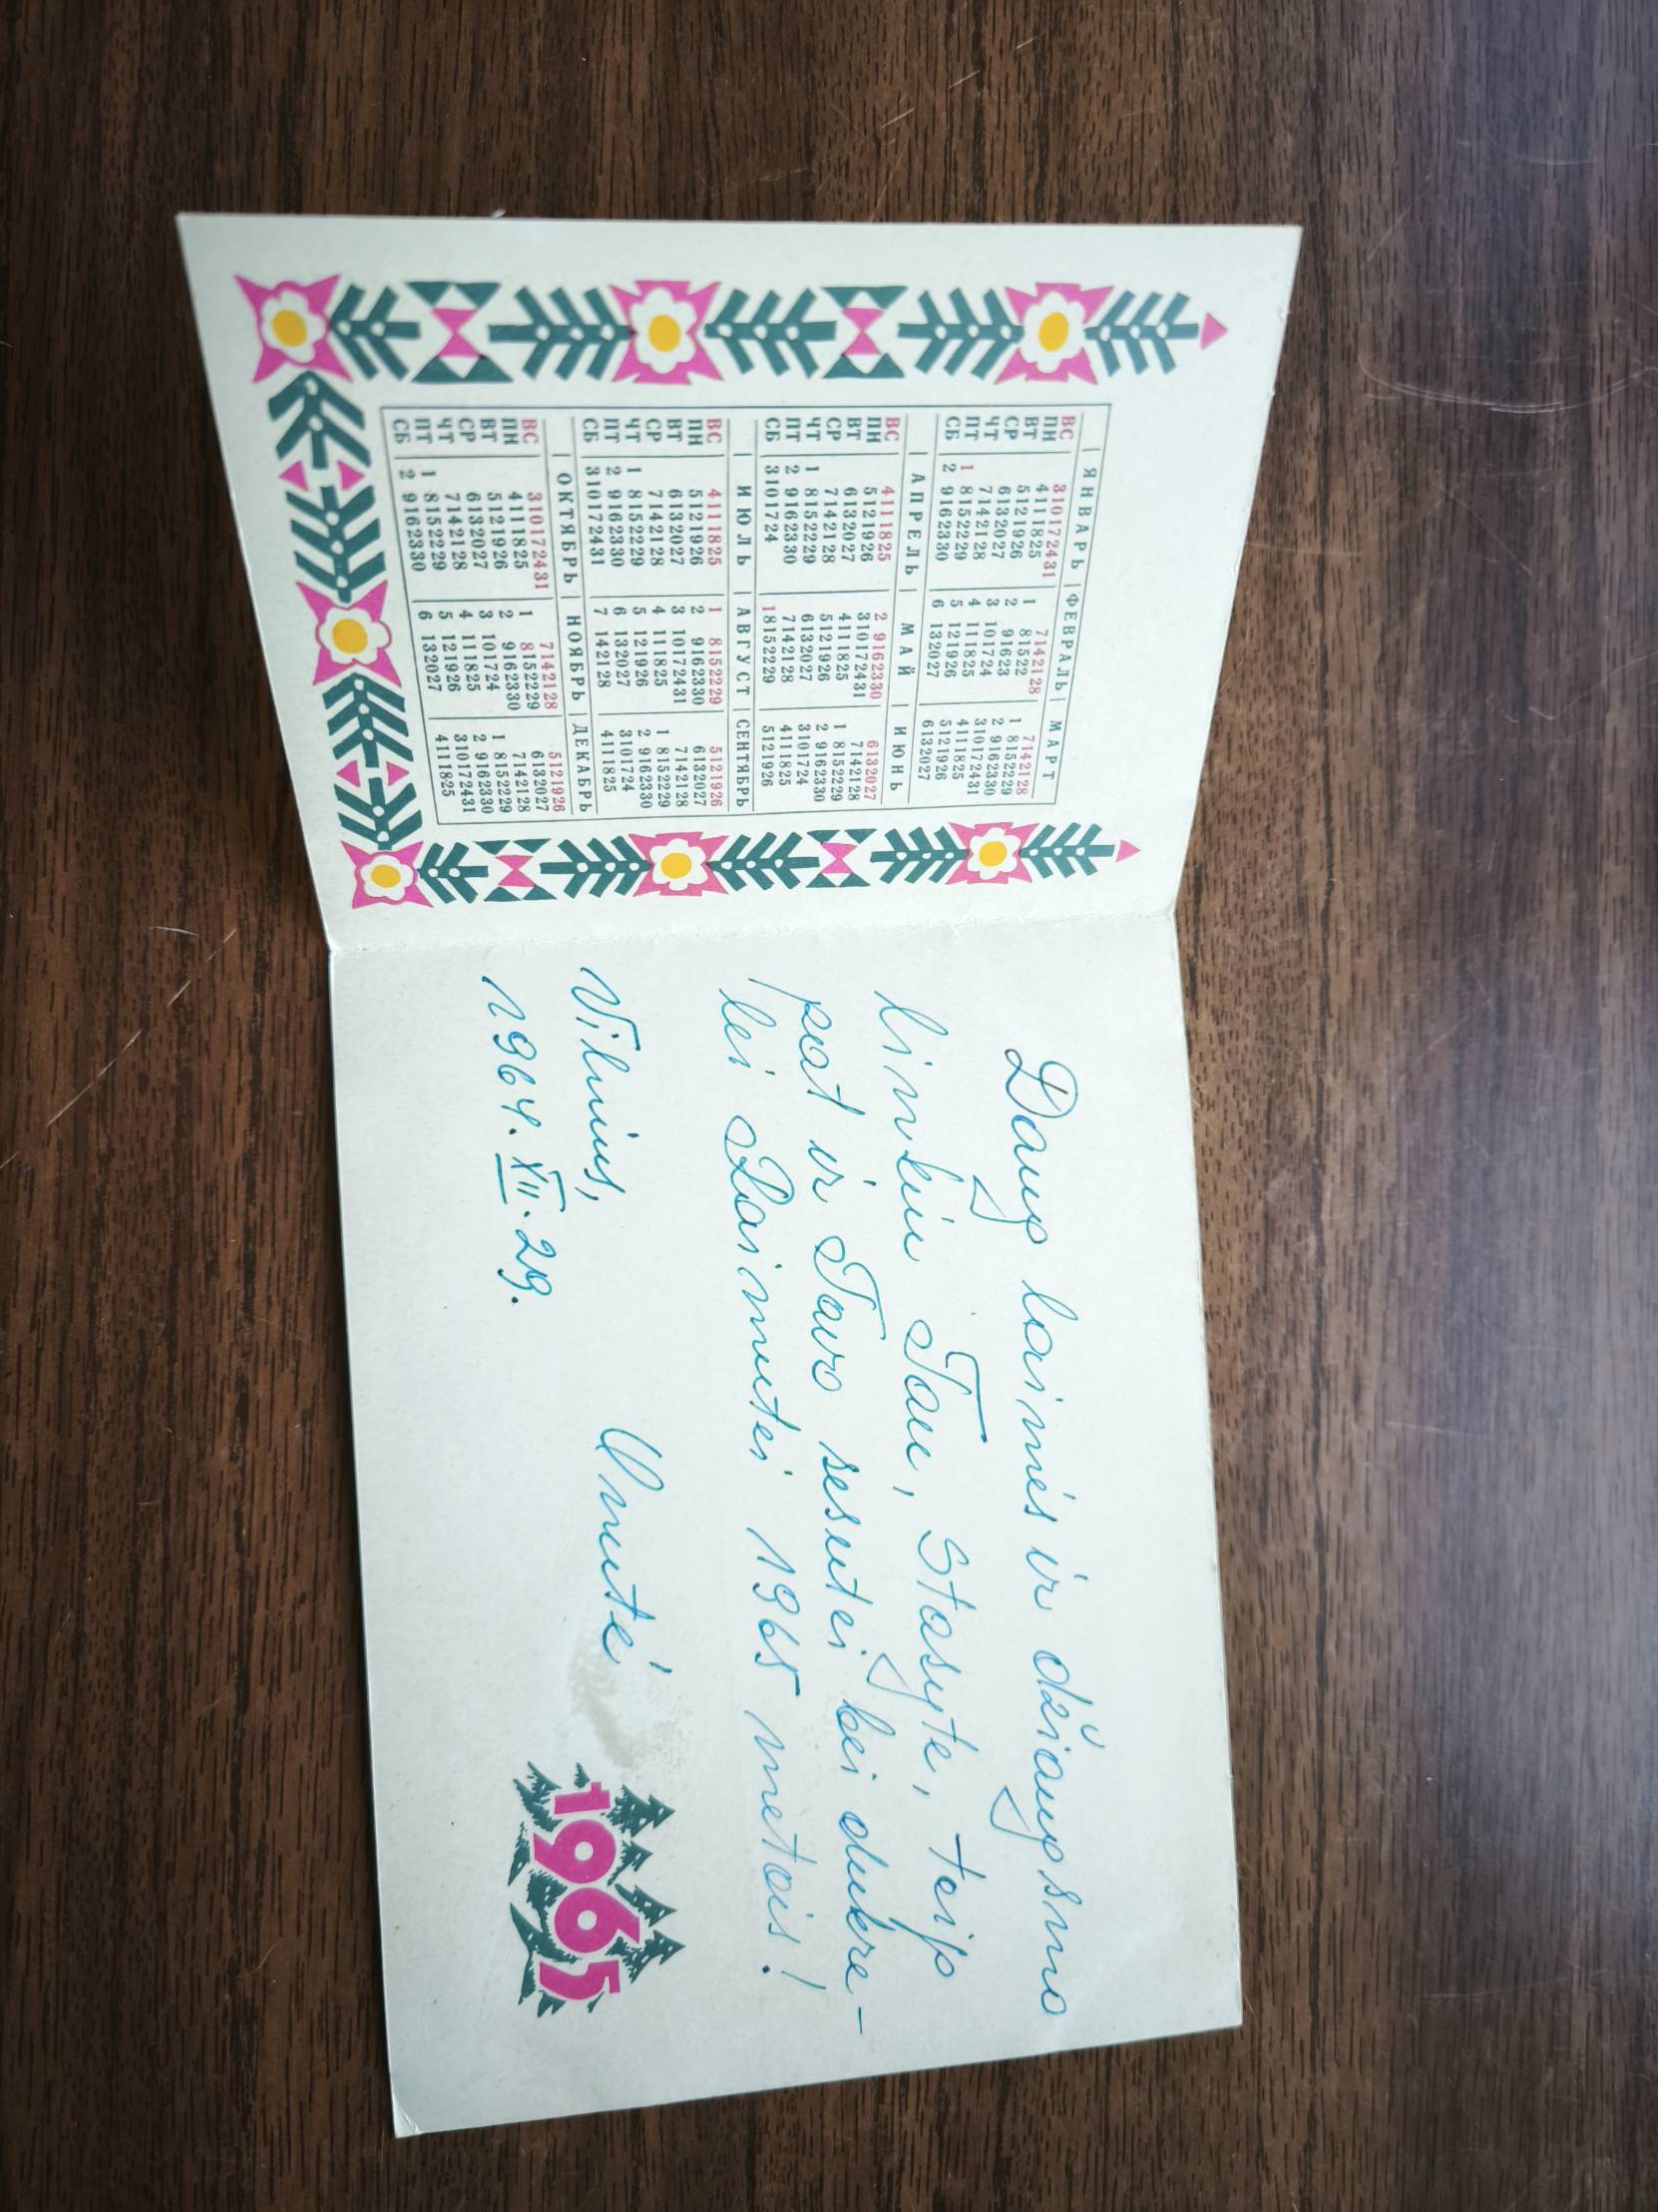 ЯНВАРЬ ФЕВРАЛЬ МАРТ
ВС 3 10 17 24 31 7 14 21 28 7 14 21 28
ПН 4 11 18 25 1 8 15 22 1 8 15 22 29
ВТ 5 12 19 26 2 9 16 23 2 9 16 23 30
СР 6 13 20 27 3 10 17 24 3 10 17 24 31
ЧТ 7 14 21 28 4 11 18 25 4 11 18 25
ПТ 1 8 15 22 29 5 12 19 26 5 12 19 26
СБ 2 9 16 23 30 6 13 20 27 6 13 20 27
АПРЕЛЬ МАЙ ИЮНЬ
ВС 4 11 18 25 2 9 16 23 30 6 13 20 27
ПН 5 12 19 26 3 10 17 24 31 7 14 21 28
ВТ 6 13 20 27 4 11 18 25 1 8 15 22 29
СР 7 14 21 28 5 12 19 26 2 9 16 23 30
ЧТ 1 8 15 22 29 6 13 20 27 3 10 17 24
ПТ 2 9 16 23 30 7 14 21 28 4 11 18 25
СБ 3 10 17 24 1 8 15 22 29 5 12 19 26
ИЮЛЬ АВГУСТ СЕНТЯБРЬ
ВС 4 11 18 25 1 8 15 22 29 5 12 19 26
ПН 5 12 19 26 2 9 16 23 30 6 13 20 27
ВТ 6 13 20 27 3 10 17 24 31 7 14 21 28
СР 7 14 21 28 4 11 18 25 1 8 15 22 29
ЧТ 1 8 15 22 29 5 12 19 26 2 9 16 23 30
ПТ 2 9 16 23 30 6 13 20 27 3 10 17 24
СБ 3 10 17 24 31 7 14 21 28 4 11 18 25
ОКТЯБРЬ НОЯБРЬ ДЕКАБРЬ
ВС 3 10 17 24 31 7 14 21 28 5 12 19 26
ПН 4 11 18 25 1 8 15 22 29 6 13 20 27
ВТ 5 12 19 26 2 9 16 23 30 7 14 21 28
СР 6 13 20 27 3 10 17 24 1 8 15 22 29
ЧТ 7 14 21 28 4 11 18 25 2 9 16 23 30
ПТ 1 8 15 22 29 5 12 19 26 3 10 17 24 31
СБ 2 9 16 23 30 6 13 20 27 4 11 18 25
Daug laimės ir džiaugsmo
linkiu Tau, Stasyte, taip
pat ir Tavo sesutei bei dukre-
lei Laimutei 1965 metais!
Vilnius, Onutė
1964.XII.29.
1965